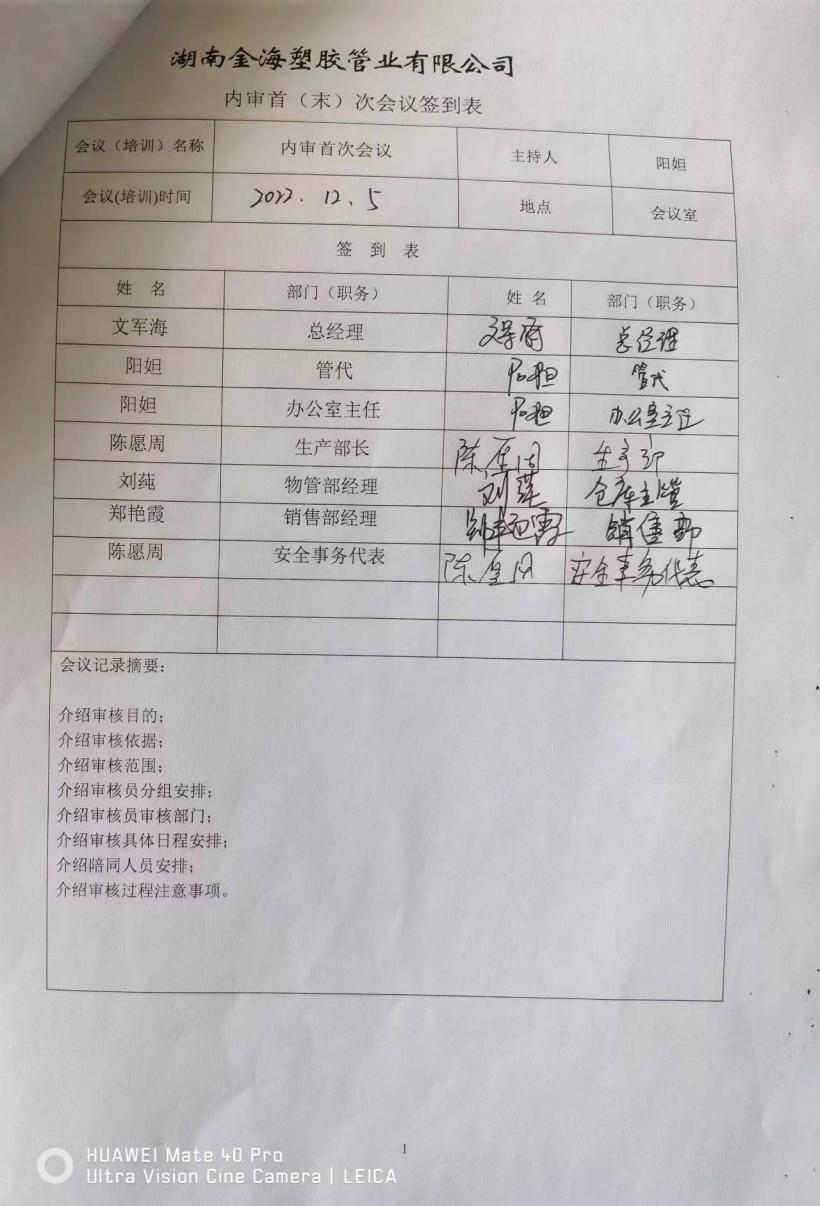 湖南金海塑胶管业有限公司
内审首（末）次会议签到表
会议（培训）名称 内审首次会议 主持人 阳妲
会议(培训)时间 2022.12、5 地点 会议室
签 到 表
姓 名 部门（职务） 姓 名 部门（职务）
文军海 总经理 总经理
阳妲 管代 阳妲 管代
阳妲 办公室主任 阳妲 办公室主任
陈愿周 生产部长 陈愿周 生产部
刘莼 物管部经理 刘莼 仓库主管
郑艳霞 销售部经理 郑艳霞 销售部
陈愿周 安全事务代表 陈愿周 安全事务代表
会议记录摘要：
介绍审核目的；
介绍审核依据；
介绍审核范围；
介绍审核员分组安排；
介绍审核员审核部门；
介绍审核具体日程安排；
介绍陪同人员安排；
介绍审核过程注意事项。
1
HUAWEI Mate 40 Pro
Ultra Vision Cine Camera | LEICA